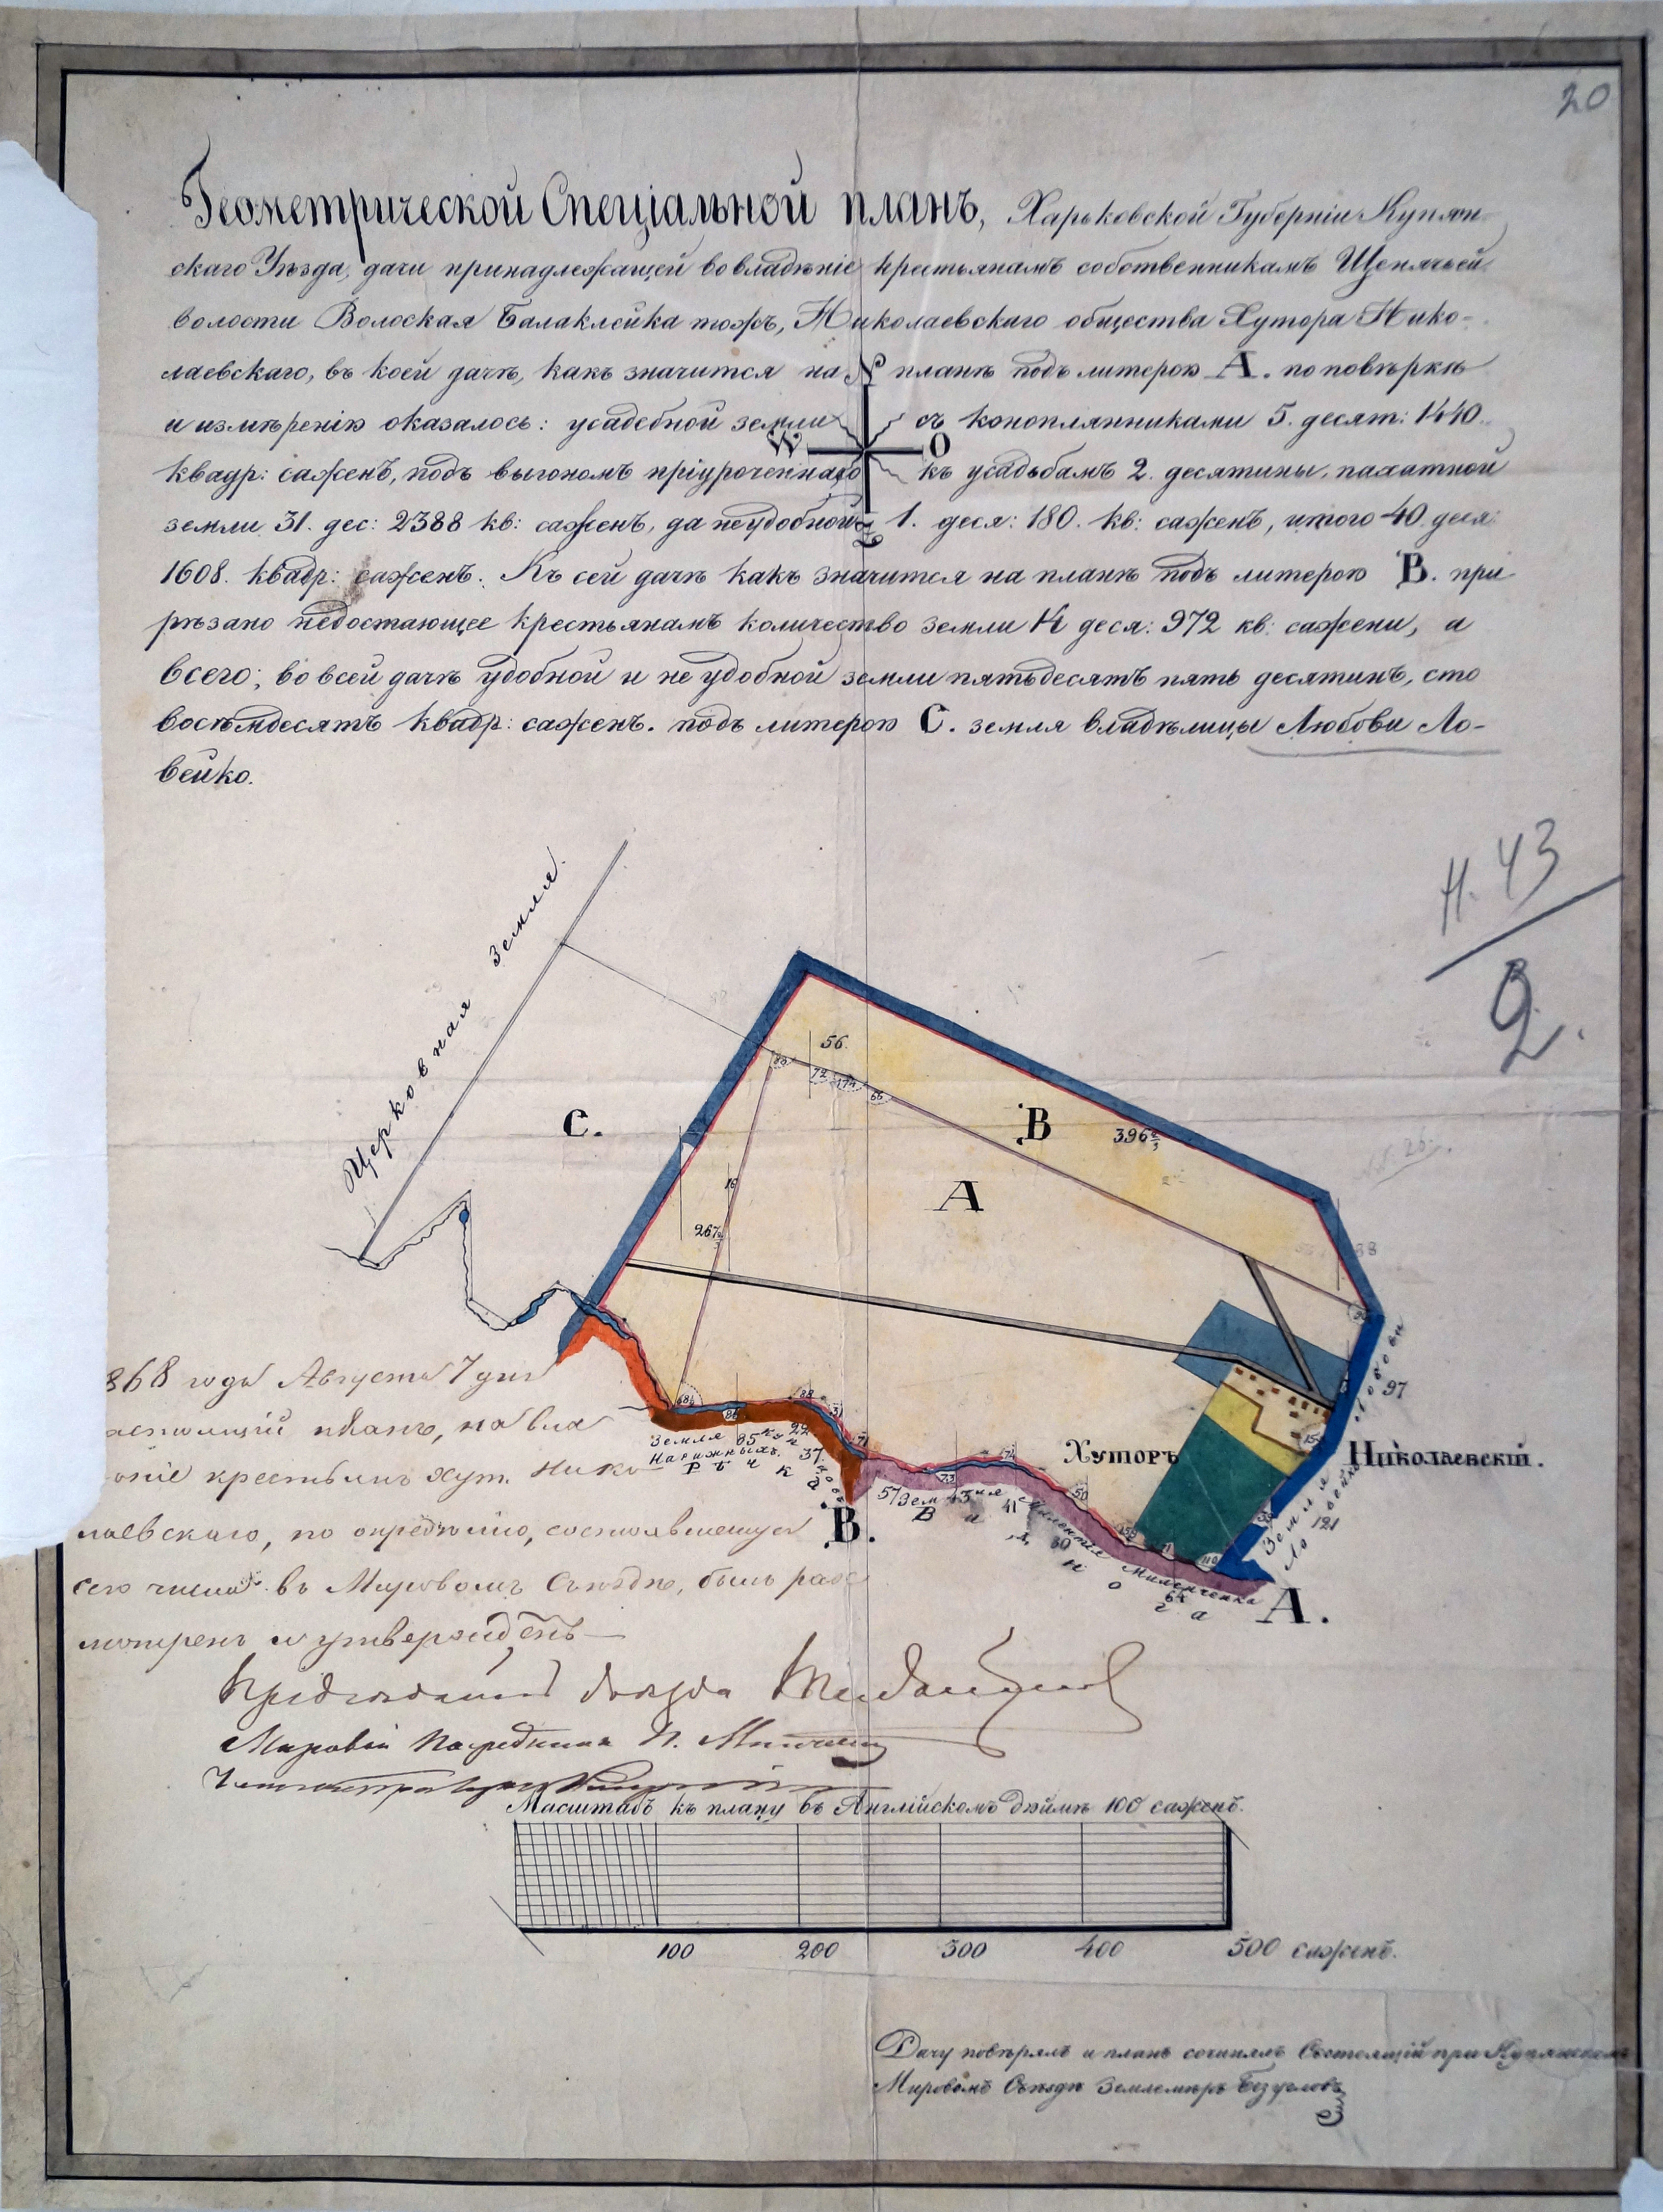 20
Геометрической Спеціальной планъ, Харьковской Губерніи Купян-
скаго Уѣзда, дачи принадлежащей во владѣніе крестьянамъ собственникамъ Щенячьей
волости Волоская Балаклейка тожъ, Николаевскаго общества Хутора Нико-
лаевскаго, въ коей дачѣ, какъ значится на планѣ подъ литерою А. по повѣркѣ
и измѣренію оказалось: усадебной земли съ конопляниками 5. десят: 1440.
квадр: саженъ, подъ выгономъ пріуроченнаго къ усадьбамъ 2. десятины, пахатной
земли 31. дес: 2388 кв: саженъ, да неудобной 1. деся: 180. кв: саженъ, итого 40 деся:
1608. квадр: саженъ. Къ сей дачѣ какъ значится на планѣ подъ литерою В. при
рѣзано недостающее крестьянамъ количество земли 14 деся: 972 кв: сажени, а
всего; во всей дачѣ удобной и не удобной земли пятьдесятъ пять десятинъ, сто
восѣмдесятъ квадр: саженъ. подъ литерою С. земля владѣлицы Любови Ло-
вейко.
N
W O
Н. 43
2.
Церковная Земля.
С.
56.
В
396 2/3
А
16
267 1/3
97
Хуторъ Николаевскій.
Земля
Ловейко
121
Земля 85
Нарижныхъ.
Рѣчка
22
37
В.
57 Земля 43 41
Двурѣчная
30
Миленченка
64
А.
868 года Августа 7 дня
планъ, на вла
крестьянъ хут. Нико
лаевскаго, по опредѣленію, состоявшемуся
сего числа въ Мировомъ Съѣздѣ, былъ разс
мотренъ и утвержденъ
Предсѣдатель Съѣзда
Мировой Посредникъ П.
Масштабъ къ плану въ Англійскомъ дюймѣ 100 саженъ.
100 200 300 400 500 саженъ.
Дачу повѣрялъ и планъ сочинялъ Состоящій при Купянскомъ
Мировомъ Съѣздѣ Землемѣръ Безугловъ